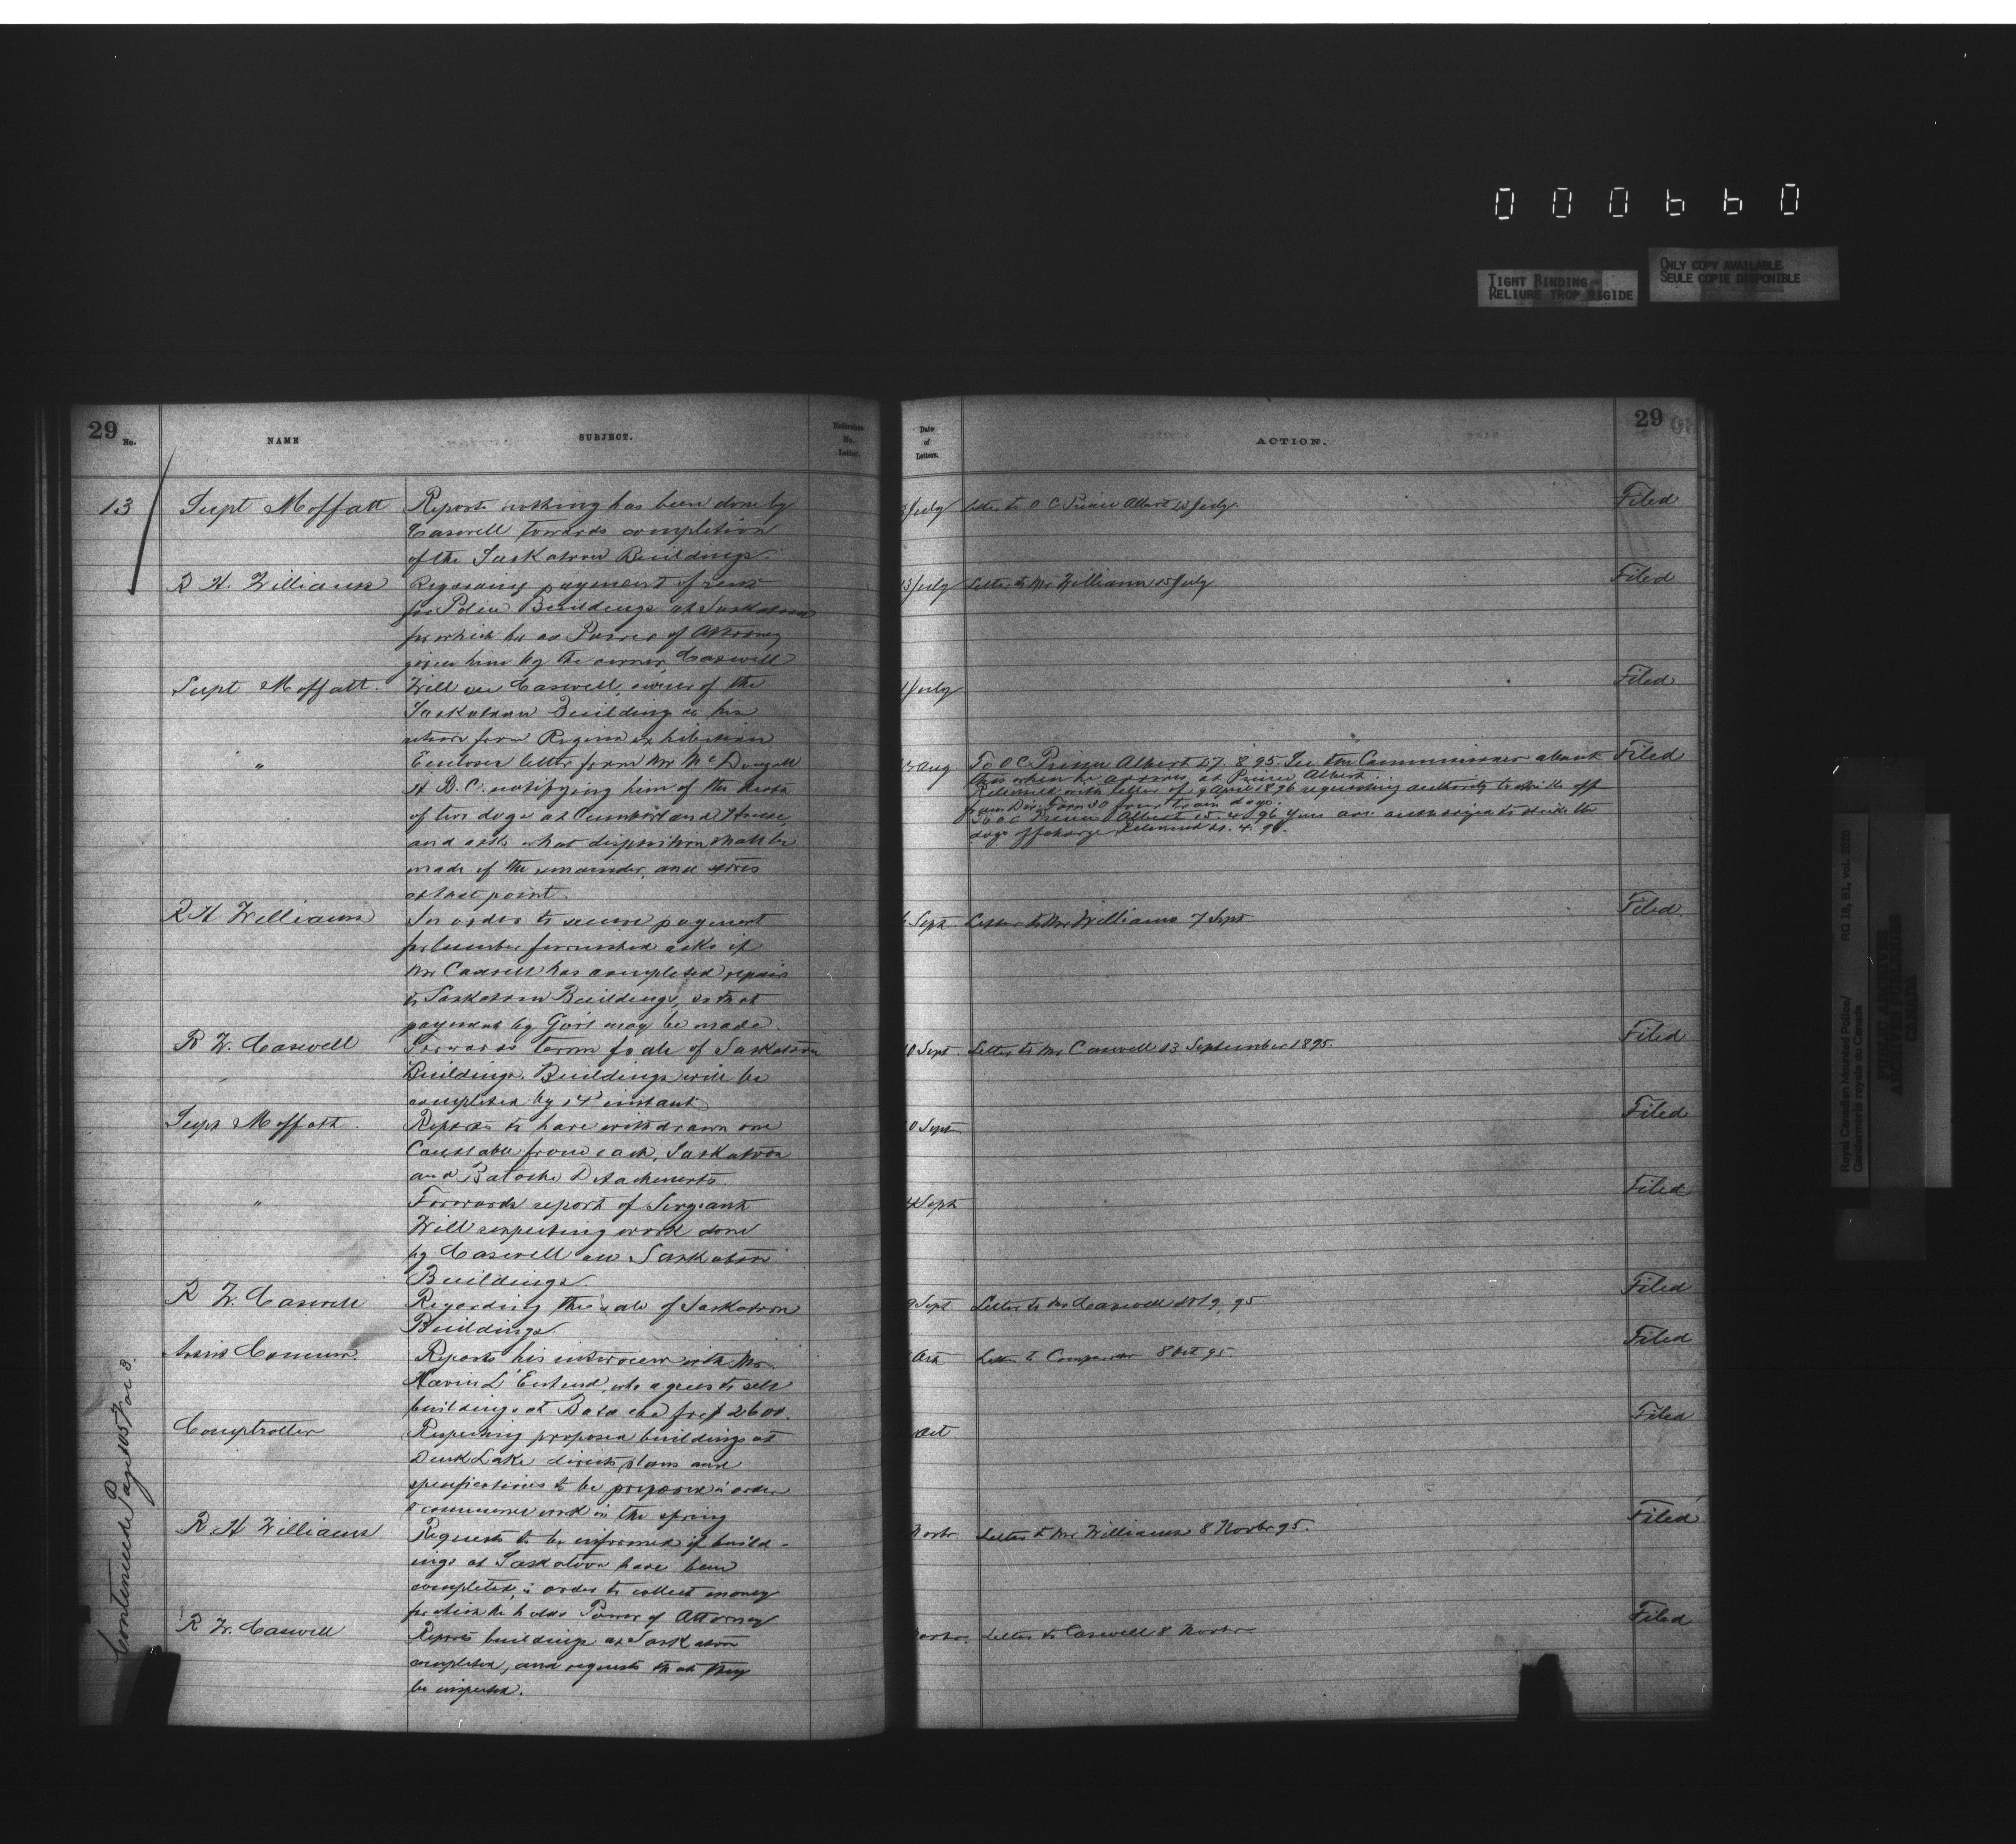 000660
TIGHT BINDING
RELIURE TROP RIGIDE
ONLY COPY AVAILABLE
SEULE COPIE DISPONIBLE
29 No.
NAME
SUBJECT.
Reference No. Letter.
Date of Letters.
ACTION.
29
13
Supt Moffatt
Reports nothing has been done by
Caswell towards completion
of the Saskatoon Buildings.
July
Letter to O C Prince Albert 13 July.
Filed
R H. Williams
Regarding payment of rent
for Police Buildings at Saskatoon
for which he as Power of Attorney
given him by the owner, Caswell
13/July
Letter to Mr Williams 15 July.
Filed
Supt Moffatt.
Will see Caswell, owner of the
Saskatoon Building on his
return from Regina exhibition
July
Filed
"
Encloses letter from Mr McDougall
H. B. C. notifying him of the death
of two dogs at Cumberland House,
and asks what disposition shall be
made of the remainder, and stores
at last point.
Aug
To O C Prince Albert 27. 8. 95. See the Commissioner about
this when he arrives at Prince Albert.
Returned with letter of 9 April 1896 requesting authority to strike off
from Div. Form 30 four train dogs.
To O C Prince Albert 15. 4. 96 You are authorized to strike the
dogs off charge. Returned 4. 9
Filed
R H Williams
In order to secure payment
for lumber furnished asks if
Mr Caswell has completed repairs
to Saskatoon Buildings, so that
payment by Gov't may be made.
Sept
Letter to Mr Williams 7 Sept
Filed
R W. Caswell
Forwards terms for sale of Saskatoon
Buildings. Buildings will be
completed by 14th instant
10 Sept.
Letter to Mr Caswell 13 September 1895.
Filed
Supt Moffatt.
Reports to have withdrawn one
Constable from each, Saskatoon
and Batoche Detachments.
0 Sept
Filed
"
Forwards report of Sergeant
Will respecting work done
by Caswell on Saskatoon
Buildings
Sept
Filed
R W. Caswell
Regarding the sale of Saskatoon
Buildings.
9 Sept.
Letter to Mr Caswell 9. 95
Filed
Assist Commr.
Reports his interview with Mr
buildings at Batoche for $2600.
Oct
Letter to Comptroller 8 Oct 95
Filed
Comptroller
Respecting proposed buildings at
Duck Lake directs plans and
specifications to be prepared in order
to commence work in the spring
Oct
Filed
R H Williams
Requests to be informed if build-
ings at Saskatoon have been
completed in order to collect money
for which he holds Power of Attorney
Novbr
Letter to Mr Williams 8 Novbr 95.
Filed
R W. Caswell
Reports buildings at Saskatoon
completed, and requests that they
be inspected.
Novbr.
Letter to Caswell 8 Novbr
Filed
Continued Page 505 Vol 3.
Royal Canadian Mounted Police/
Gendarmerie royale du Canada
RG 18, B1, vol. 2020
PUBLIC ARCHIVES
ARCHIVES PUBLIQUES
CANADA